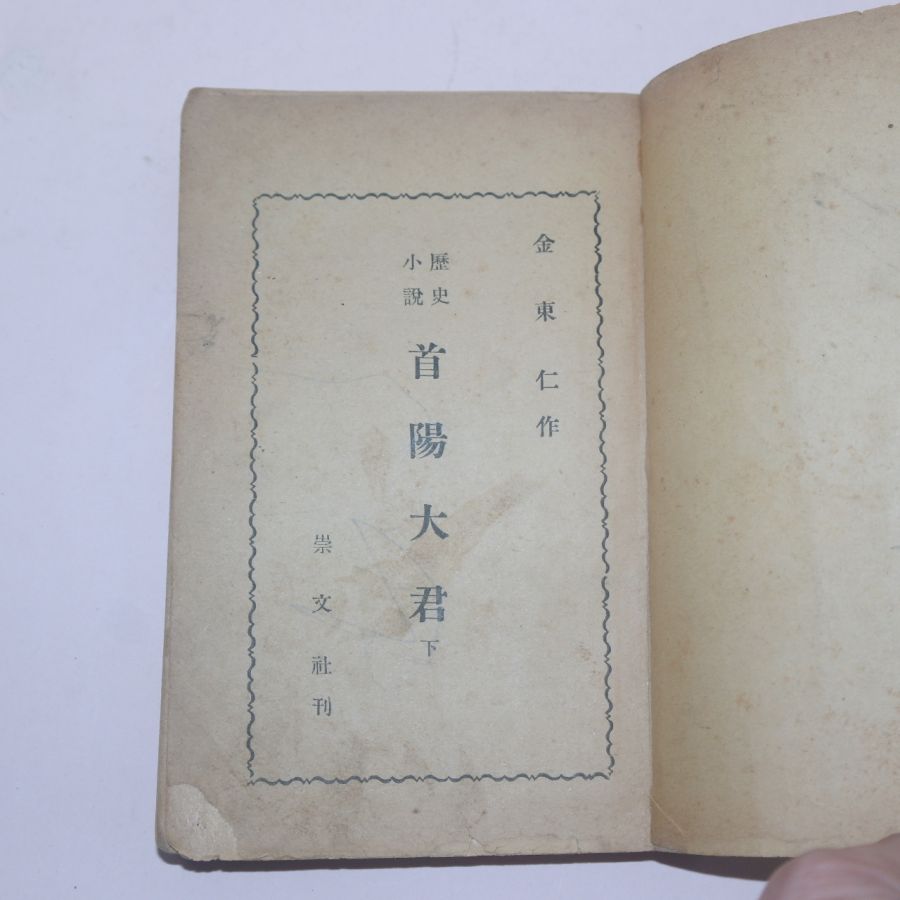 金東仁作
歷史
小說
首陽大君下
崇文社刊